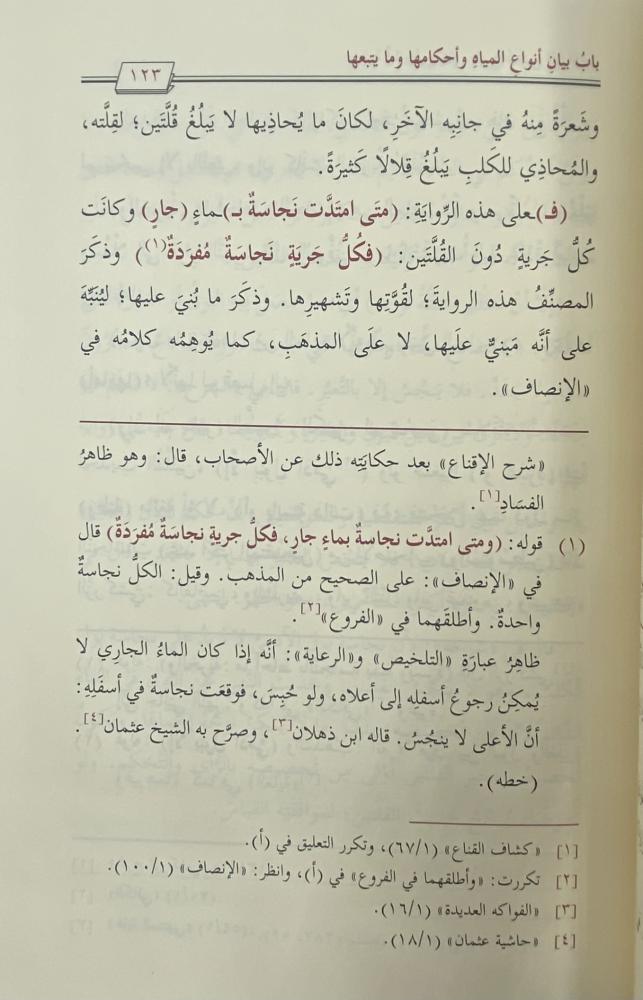 بابُ بيانِ أنواعِ المياهِ وأحكامها وما يتبعها
١٢٣
وشَعرَةً مِنهُ في جانِبِه الآخَرِ، لكانَ ما يُحاذِيها لا يَبلُغُ قُلَّتَين؛ لقِلَّته،
والمُحاذِي للكَلبِ يَبلُغُ قِلالًا كَثيرَةً.
(فـ)ـعلى هذه الرِّوايَةِ: (متَى امتَدَّت نَجاسَةٌ بـ)ـماءٍ (جارٍ) وكانَت
كُلُّ جَريةٍ دُونَ القُلَّتَين: (فكُلُّ جَريَةٍ نَجاسَةٌ مُفرَدَةٌ(١)) وذكَرَ
المصنِّفُ هذه الروايةَ؛ لقُوَّتِها وتَشهيرِها. وذكَرَ ما بُنيَ عليها؛ ليُنَبِّهَ
على أنَّه مَبنيٌّ علَيها، لا علَى المذهَبِ، كما يُوهِمُه كلامُه في
«الإنصاف».
«شرح الإقناع» بعد حكايَتِه ذلك عن الأصحاب، قال: وهو ظاهرُ
الفسَادِ[١].
(١) قوله: (ومتى امتدَّت نجاسةٌ بماءٍ جارٍ، فكلُّ جريةٍ نجاسَةٌ مُفرَدَةٌ) قال
في «الإنصاف»: على الصحيح من المذهب. وقيل: الكلُّ نجاسةٌ
واحدةٌ. وأطلقَهما في «الفروع»[٢].
ظاهِرُ عبارَةِ «التلخيص» و«الرعاية»: أنَّه إذا كان الماءُ الجاري لا
يُمكِنُ رجوعُ أسفلِه إلى أعلاه، ولو حُبِسَ، فوقعَت نجاسةٌ في أسفَلِهِ:
أنَّ الأعلى لا ينجُسُ. قاله ابن ذهلان[٣]، وصرَّح به الشيخ عثمان[٤].
(خطه).
[١] «كشاف القناع» (٦٧/١)، وتكرر التعليق في (أ).
[٢] تكررت: «وأطلقهما في الفروع» في (أ)، وانظر: «الإنصاف» (١٠٠/١).
[٣] «الفواكه العديدة» (١٦/١).
[٤] «حاشية عثمان» (١٨/١).